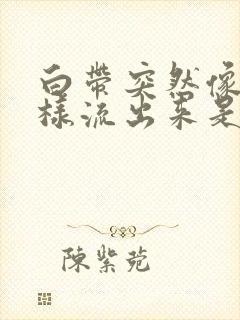 白帶突然像
樣流出来是
陳紫菀